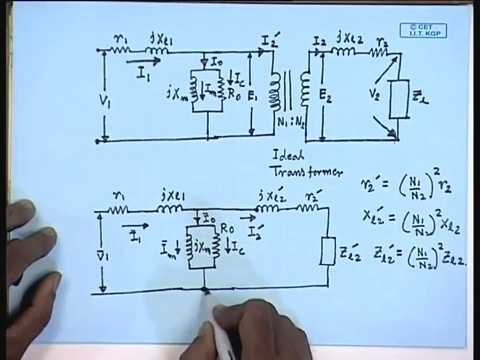 © CET
I.I.T. KGP
r1 jxl1 I2' I2 jxl2 r2
I0
I1
jXm Im Ic R0
V1 E1 E2 V2 Zl
N1 : N2
Ideal
Transformer
r1 jxl1 jxl2' r2'
I0 R0 I2'
I1
V1 Im jXm Ic Zl2'
r2' = (N1/N2)^2 r2
xl2' = (N1/N2)^2 xl2
Zl2' = (N1/N2)^2 Zl2